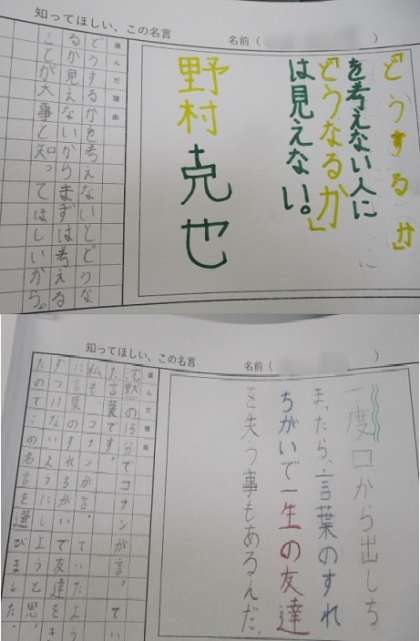 知ってほしい、この名言
名前（
どうするか」
を考えない人に
どうなるか」
は見えない。
野村克也
選んだ理由
どうするかを考えないとどうな
るか見えないからまずは考える
ことが大事と知ってほしいから。
知ってほしい、この名言
名前（ ）
一度口から出しち
まったら、言葉のすれ
ちがいで一生の友達
を失う事もあるんだ。
選んだ理由
沈黙の15分でコナンが言ってい
た言葉です。
私もコナンが言っていたよう
に言葉のすれちがいで友達をき
ずつけないようにしようと思っ
たのでこの名言を選びました。